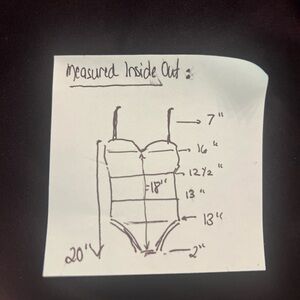 Measured Inside Out :
7"
16"
12 1/2 "
18"
13 "
13"
20"
2"